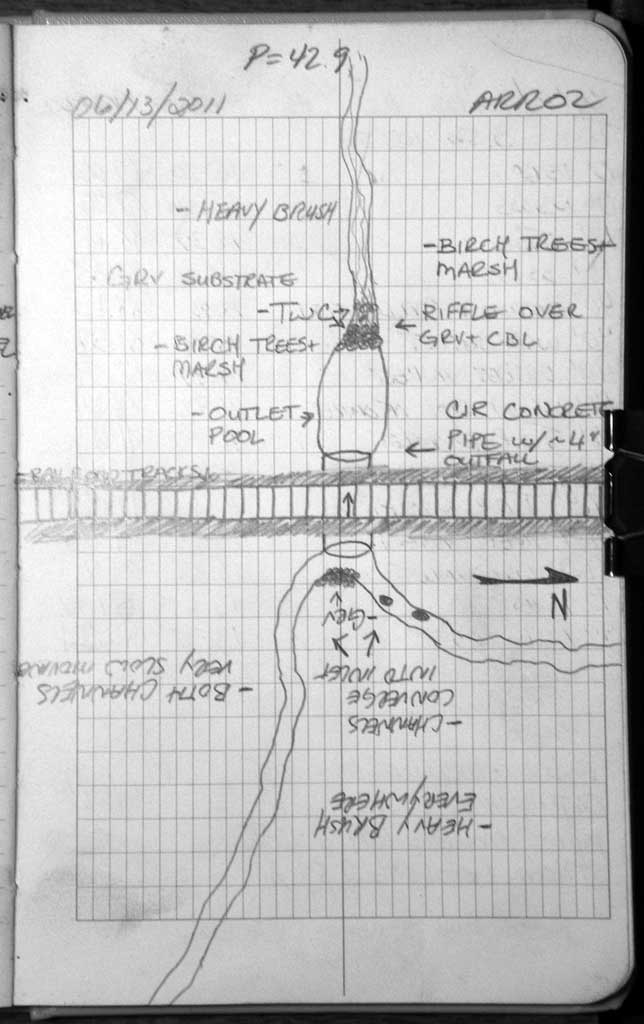 P=42.9
06/13/2011
ARR02
- HEAVY BRUSH
- BIRCH TREES +
MARSH
- GRV SUBSTRATE
- TWC
RIFFLE OVER
GRV + CBL
- BIRCH TREES +
MARSH
- OUTLET
POOL
CIR CONCRETE
PIPE W/ ~4"
OUTFALL
- RAILROAD TRACKS
N
- GRV
- CHANNELS
CONVERGE
INTO INLET
- BOTH CHANNELS
VERY SLOW MOVING
- HEAVY BRUSH
EVERYWHERE